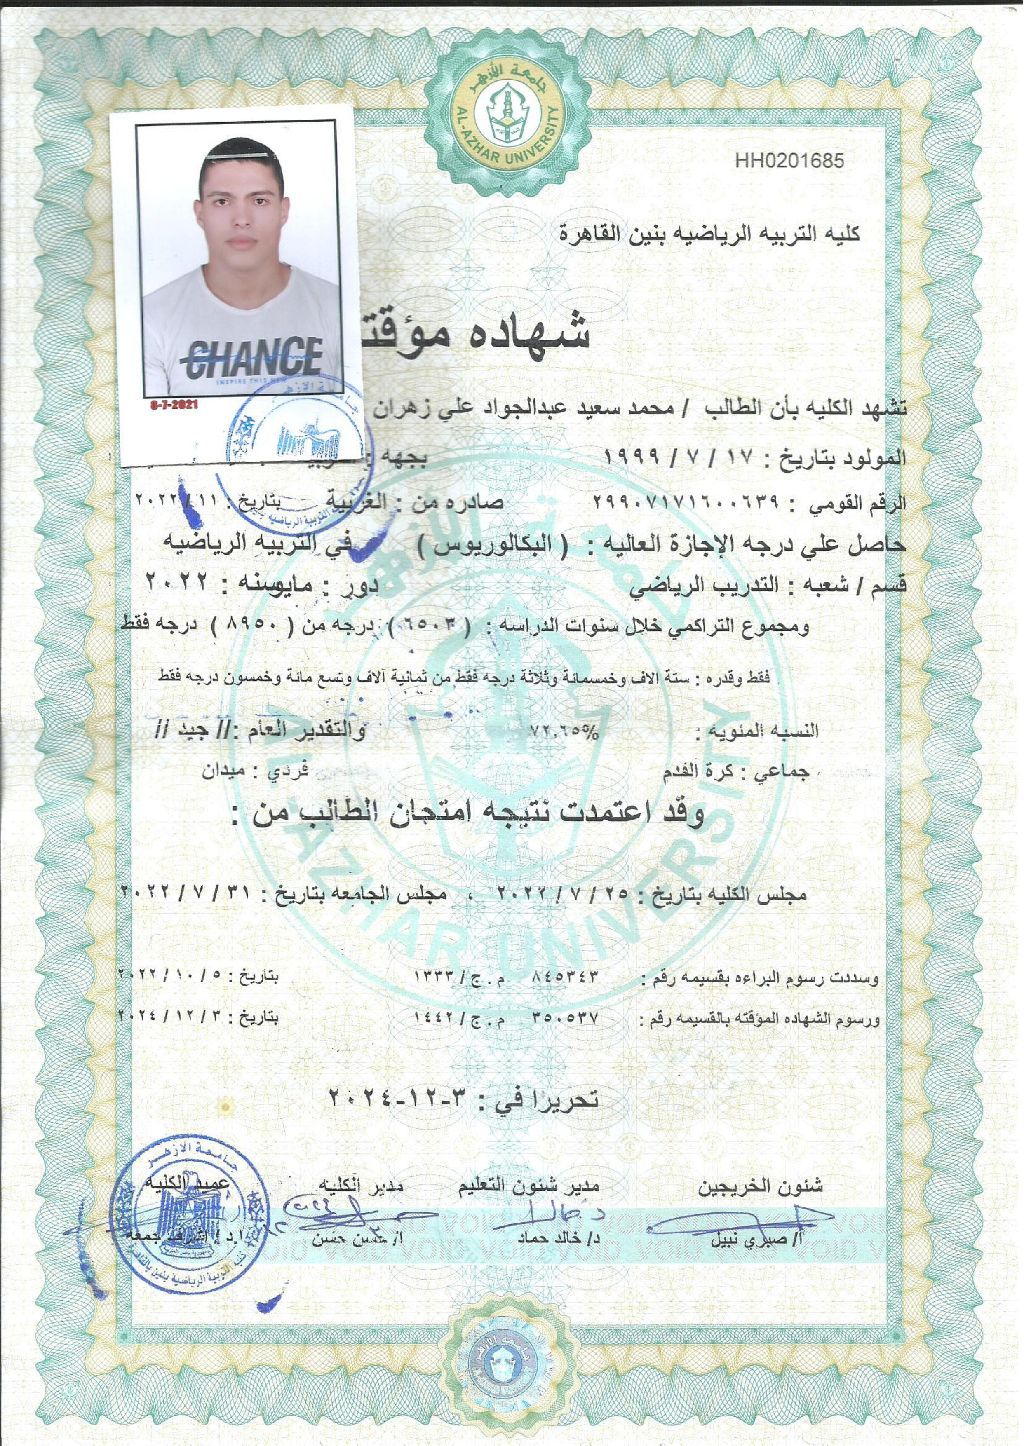 جامعة الأزهر
AL-AZHAR UNIVERSITY
HH0201685
كليه التربيه الرياضيه بنين القاهرة
شهاده مؤقت
CHANCE
8-7-2021
تشهد الكليه بأن الطالب / محمد سعيد عبدالجواد علي زهران
المولود بتاريخ : ١٧ / ٧ / ١٩٩٩ بجهه :
الرقم القومي : ٢٩٩٠٧١٧١٦٠٠٦٣٩ صادره من : الغربية بتاريخ : ١١ / ٢٠٢٢
حاصل علي درجه الإجازة العاليه : ( البكالوريوس ) في التربيه الرياضيه
قسم / شعبه : التدريب الرياضي دور : مايوسنه : ٢٠٢٢
ومجموع التراكمي خلال سنوات الدراسه : ( ٦٥٠٣ ) درجه من ( ٨٩٥٠ ) درجه فقط
فقط وقدره : ستة آلاف وخمسمائة وثلاثة درجه فقط من ثمانية آلاف وتسع مائة وخمسون درجه فقط
النسبه المئويه : ٧٢,٦٥% والتقدير العام :// جيد //
جماعي : كرة القدم فردي : ميدان
وقد اعتمدت نتيجه امتحان الطالب من :
مجلس الكليه بتاريخ : ٢٥ / ٧ / ٢٠٢٢ ، مجلس الجامعه بتاريخ : ٣١ / ٧ / ٢٠٢٢
وسددت رسوم البراءه بقسيمه رقم : ٨٤٥٣٤٣ م . ج / ١٣٣٣ بتاريخ : ٥ / ١٠ / ٢٠٢٢
ورسوم الشهاده المؤقته بالقسيمه رقم : ٣٥٠٥٣٧ م . ج / ١٤٤٢ بتاريخ : ٣ / ١٢ / ٢٠٢٤
تحريرا في : ٣-١٢-٢٠٢٤
شئون الخريجين مدير شئون التعليم مدير الكليه عميد الكليه
أ/ صبري نبيل د/ خالد حماد أ/ حسن حسن ا.د / اشرف جمعه
جامعة الازهر